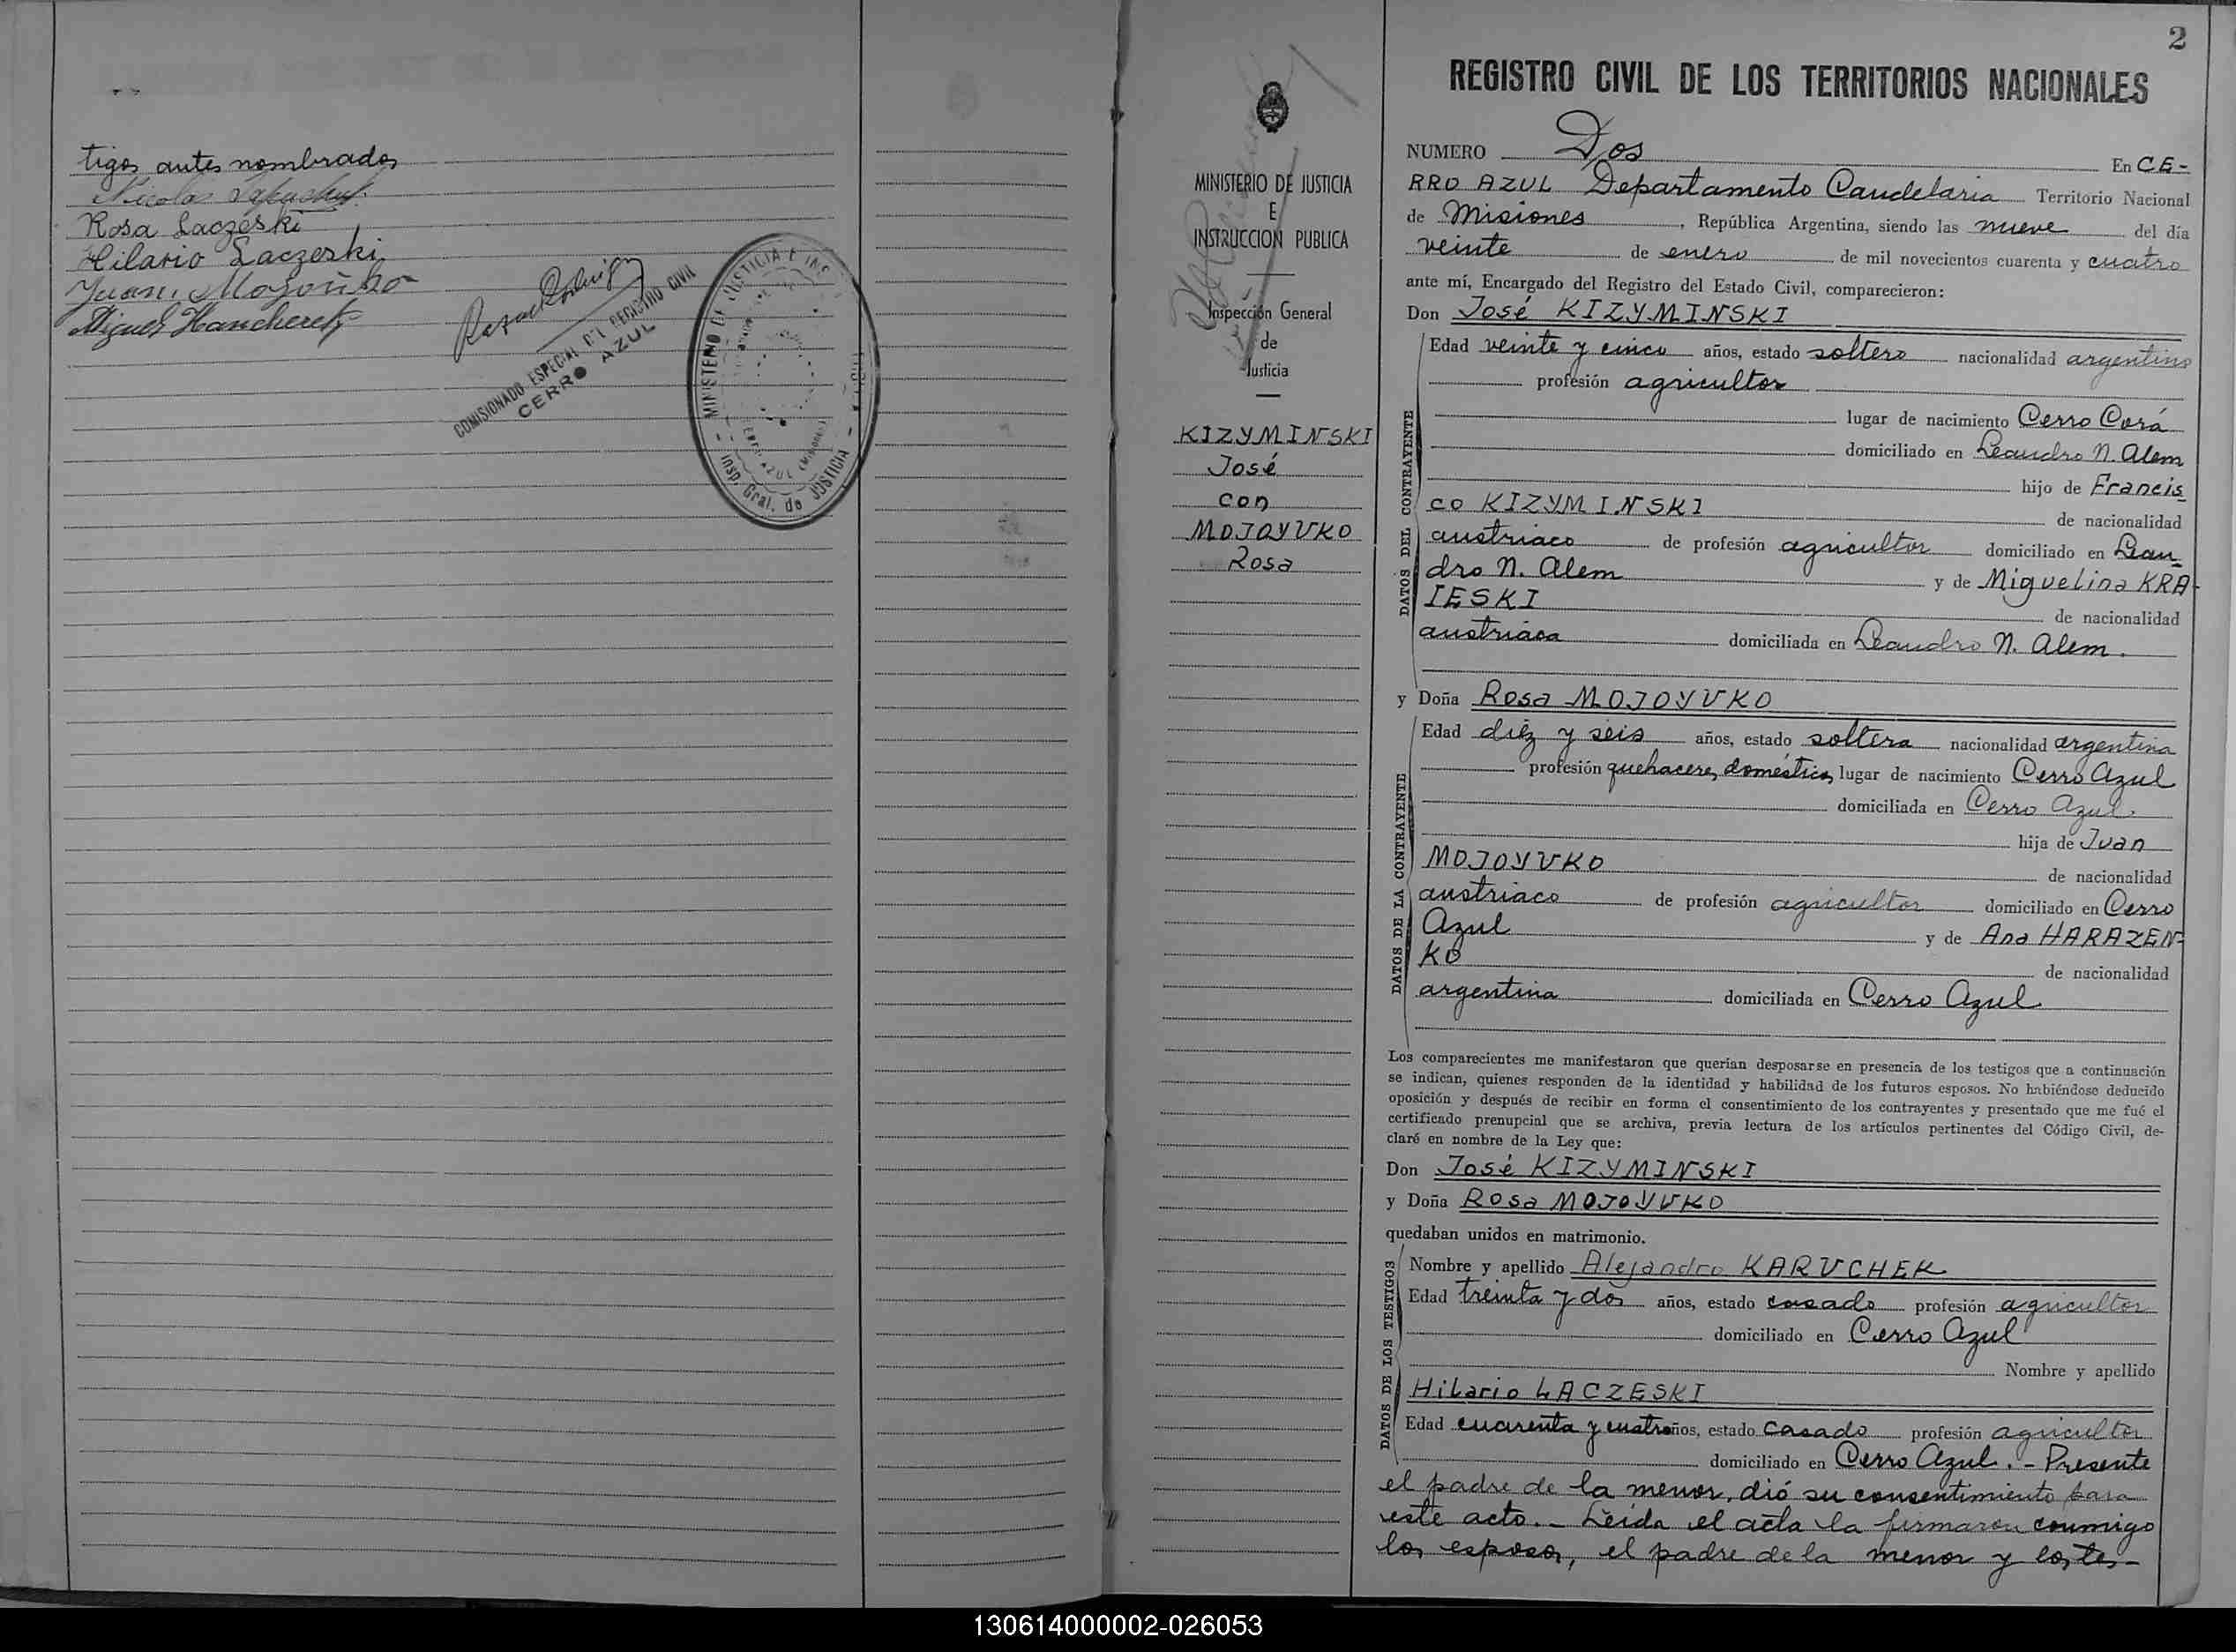 tigos antes nombrados
Nicolas
Rosa Laczeski
Hilario Laczeski
Juan Mozouko
Miguel Hancheretz
COMISIONADO ESPECIAL DEL REGISTRO CIVIL
CERRO AZUL
MINISTERIO DE JUSTICIA E INS
Insp. Gral. de JUSTICIA
CERRO AZUL (MISIONES)
MINISTERIO DE JUSTICIA
E
INSTRUCCION PUBLICA
Inspección General
de
Justicia
KIZYMINSKI
José
con
MOJOYUKO
Rosa
2
REGISTRO CIVIL DE LOS TERRITORIOS NACIONALES
NUMERO Dos En CE-
RRO AZUL Departamento Candelaria Territorio Nacional
de Misiones, República Argentina, siendo las nueve del día
veinte de enero de mil novecientos cuarenta y cuatro
ante mí, Encargado del Registro del Estado Civil, comparecieron:
Don José KIZYMINSKI
DATOS DEL CONTRAYENTE
Edad veinte y cinco años, estado soltero nacionalidad argentino
profesión agricultor
lugar de nacimiento Cerro Corá
domiciliado en Leandro N. Alem
hijo de Francis
co KIZYMINSKI de nacionalidad
austriaco de profesión agricultor domiciliado en Lean-
dro N. Alem y de Miguelina KRA-
IESKI de nacionalidad
austriaca domiciliada en Leandro N. Alem.
y Doña Rosa MOJOYUKO
DATOS DE LA CONTRAYENTE
Edad diéz y seis años, estado soltera nacionalidad argentina
profesión quehaceres domésticos lugar de nacimiento Cerro Azul
domiciliada en Cerro Azul.
hija de Juan
MOJOYUKO de nacionalidad
austriaco de profesión agricultor domiciliado en Cerro
Azul y de Ana HARAZEN-
KO de nacionalidad
argentina domiciliada en Cerro Azul
Los comparecientes me manifestaron que querían desposarse en presencia de los testigos que a continuación
se indican, quienes responden de la identidad y habilidad de los futuros esposos. No habiéndose deducido
oposición y después de recibir en forma el consentimiento de los contrayentes y presentado que me fué el
certificado prenupcial que se archiva, previa lectura de los artículos pertinentes del Código Civil, de-
claré en nombre de la Ley que:
Don José KIZYMINSKI
y Doña Rosa MOJOYUKO
quedaban unidos en matrimonio.
DATOS DE LOS TESTIGOS
Nombre y apellido Alejandro KARUCHEK
Edad treinta y dos años, estado casado profesión agricultor
domiciliado en Cerro Azul
Nombre y apellido
Hilario LACZESKI
Edad cuarenta y cuatro años, estado casado profesión agricultor
domiciliado en Cerro Azul. - Presente
el padre de la menor, dió su consentimiento para
este acto. - Leida el acta la firmaron conmigo
los esposos, el padre de la menor y los tes-
130614000002-026053